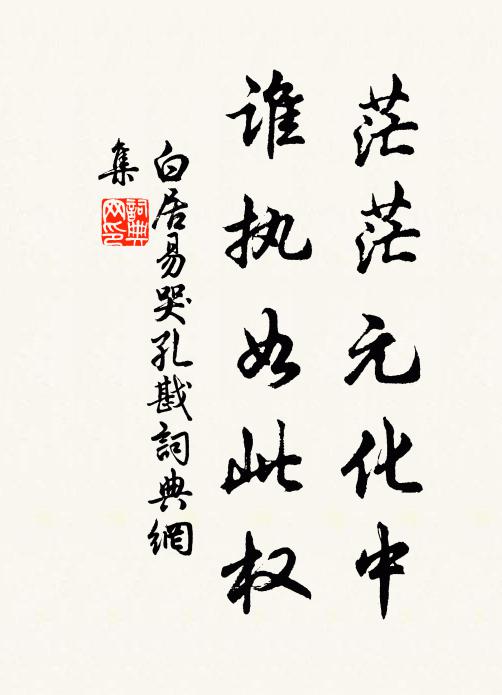 茫茫元化中
谁执如此权
白居易哭孔戡詞典網
集
詞典
网印